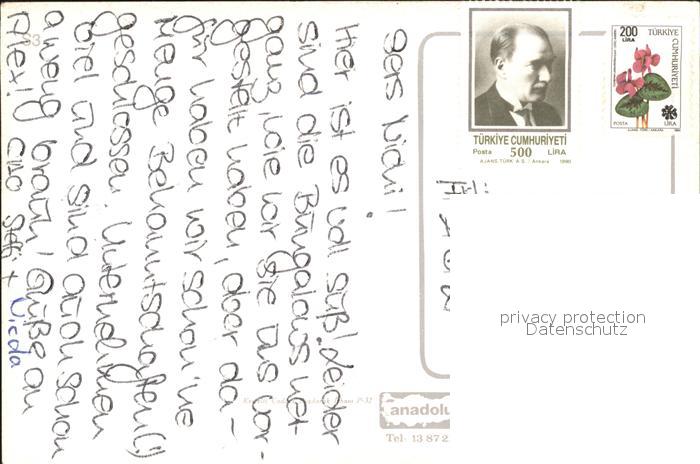 Hier ist es voll süß! Leider
sind die Bungalows net
ganz wie wir sie uns vor-
gestellt haben, aber da-
für haben wir schon 'ne
Menge Bekanntschaften(!)
geschlossen. Unternehmen
viel und sind auch schon
aweng braun! Grüße an
Alex! Ciao Steffi + Uicda
TÜRKİYE CUMHURİYETİ
Posta 500 LİRA
AJANS-TÜRK A.S. / Ankara 1990
200 LİRA
TÜRKİYE
CUMHURİYETİ
POSTA LİRA
privacy protection
Datenschutz
anadolu
Tel: 13 87 2